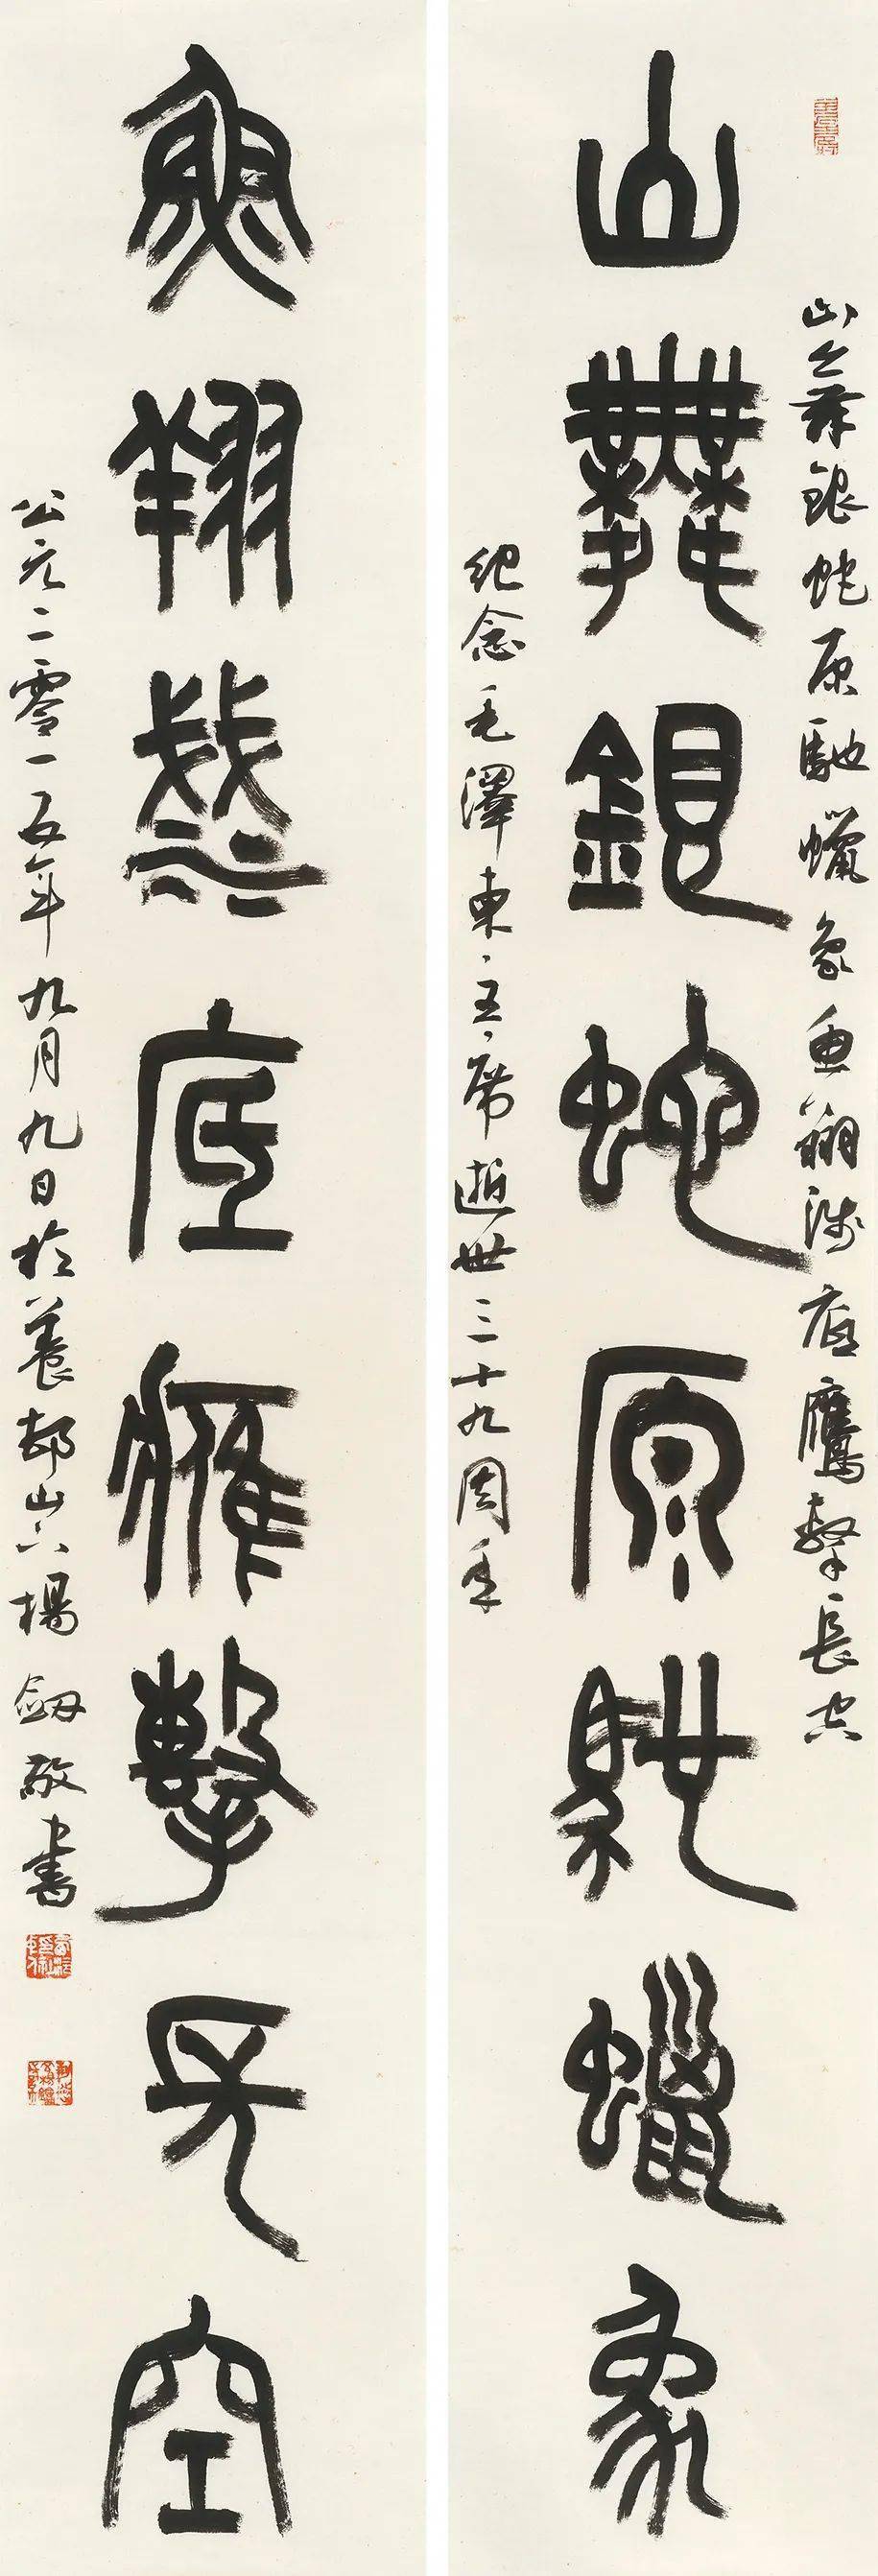 山舞銀蛇原馳蠟象
山舞銀蛇原馳蠟象魚翔淺底鷹擊長空
紀念毛澤東主席逝世三十九周年
魚翔淺底鷹擊長空
公元二零一五年九月九日於養邨山六楊劔敬書